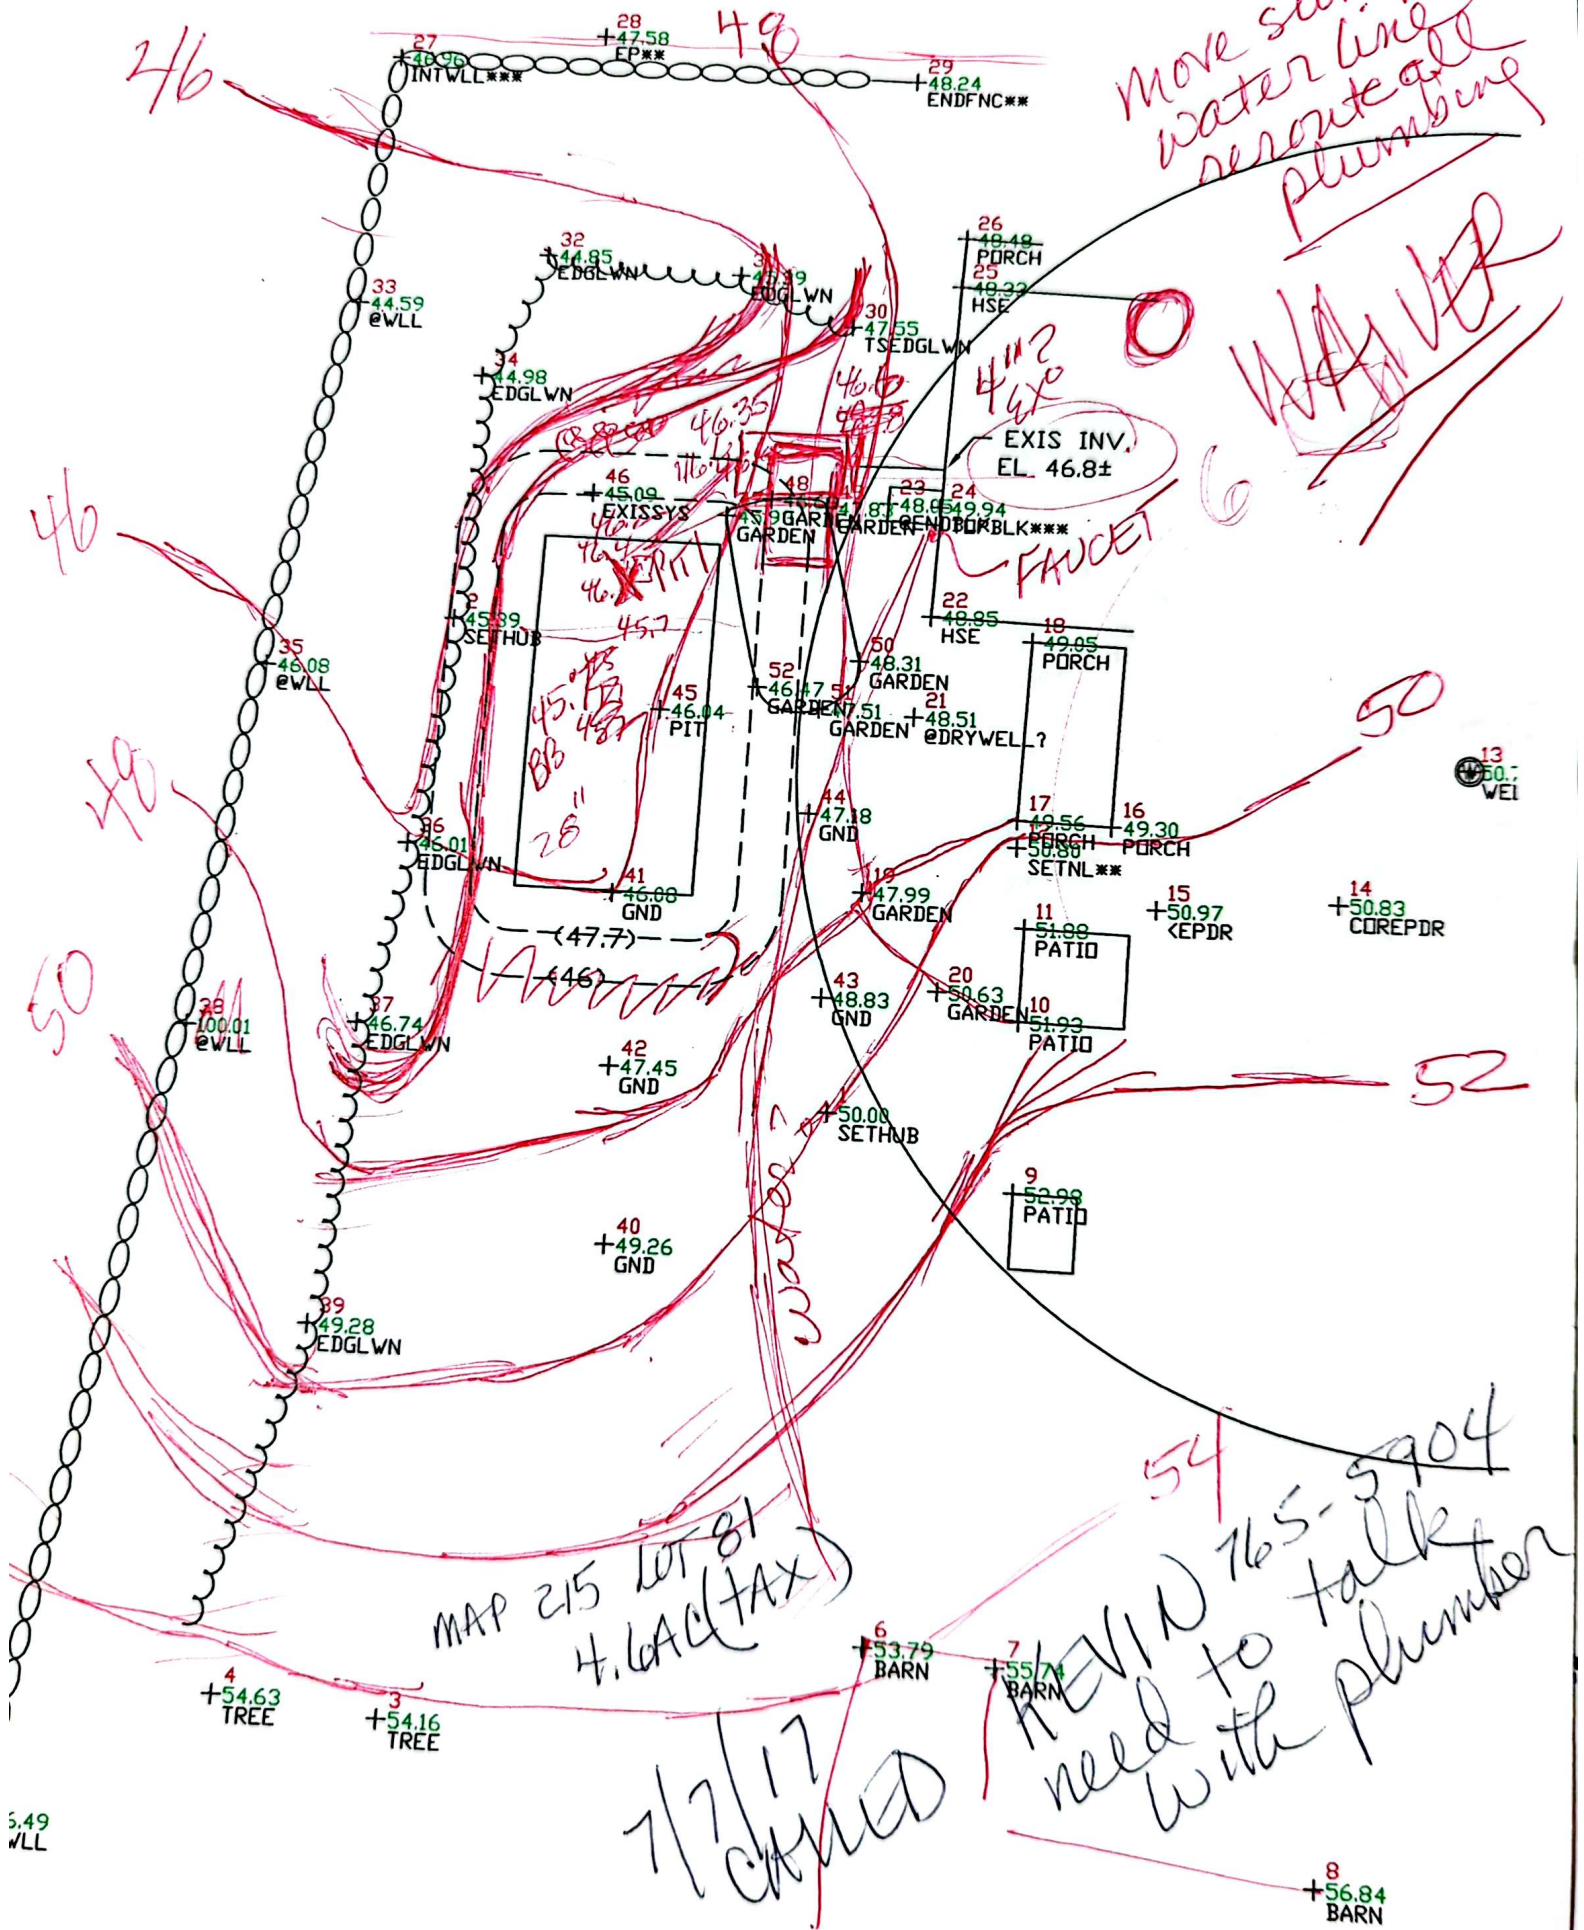 48
46
27
46.96
INTWLL***
28
47.58
EP**
29
48.24
ENDFNC**
move
water line
reroute all
plumbing
WAIVER
26
48.48
PORCH
25
48.33
HSE
32
44.85
EDGLWN
EDGLWN
33
44.59
@WLL
30
47.55
TSEDGLWN
34
44.98
EDGLWN
4"?
EX
46.35
EXIS INV.
EL. 46.8±
6
46
45.09
EXISSYS
48
GARDEN
GARDEN
GARDEN
23
48.05
24
49.94
TOPBLK***
FAUCET
46
2
45.39
SETHUB
45.7
22
48.85
HSE
18
49.05
PORCH
35
46.08
@WLL
50
48.31
GARDEN
52
46.47
GARDEN
51
47.51
GARDEN
21
48.51
@DRYWELL?
45
46.04
PIT
50
13
48
28"
44
47.18
GND
17
49.56
PORCH
16
49.30
PORCH
50.80
SETNL**
36
46.01
EDGLWN
41
46.08
GND
19
47.99
GARDEN
15
50.97
<EPDR
14
50.83
COREPDR
11
51.88
PATIO
(47.7)
(46)
50
38
100.01
@WLL
37
46.74
EDGLWN
43
48.83
GND
20
50.63
GARDEN
10
51.93
PATIO
42
47.45
GND
52
1
50.00
SETHUB
water ?
9
52.98
PATIO
40
49.26
GND
39
49.28
EDGLWN
54
MAP 215 LOT 81
4.6AC (TAX)
KEVIN 765-5904
need to talk
with plumber
6
53.79
BARN
7
55.74
BARN
4
54.63
TREE
3
54.16
TREE
7/7/17
CALLED
6.49
WLL
8
56.84
BARN